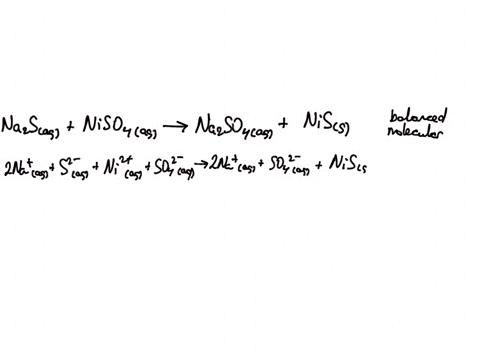 Na₂S(aq) + NiSO₄(aq) → Na₂SO₄(aq) + NiS(s) balanced
molecular
2Na⁺(aq) + S²⁻(aq) + Ni²⁺(aq) + SO₄²⁻(aq) → 2Na⁺(aq) + SO₄²⁻(aq) + NiS(s